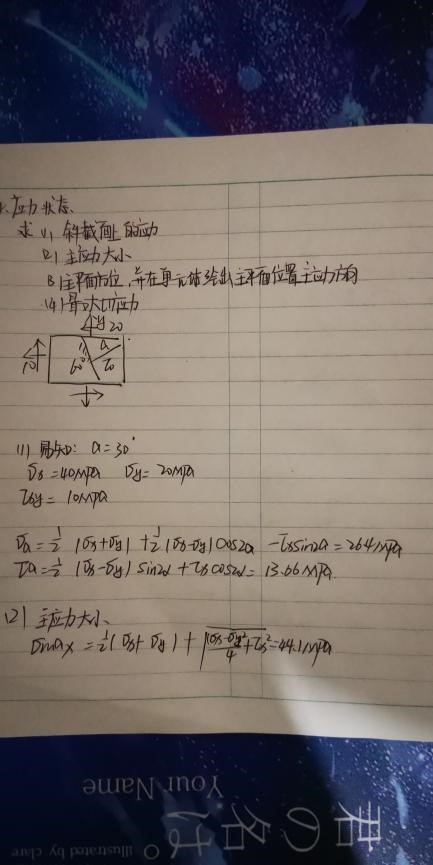 应力状态
求 (1) 斜截面上的应力
(2) 主应力大小
(3) 主平面方位,并在单元体绘出主平面位置主应力方向
(4) 最大切应力
y 20
10
a
60°
(1) 易知: α=30°
σx=40MPa σy=20MPa
τxy=10MPa
σα=½(σx+σy)+½(σx-σy)cos2α-τxsin2α=26.4MPa
τα=½(σx-σy)sin2α+τxcos2α=13.66MPa.
(2) 主应力大小
σmax=½(σx+σy)+√((σx-σy)²/4+τx²)=44.1MPa
Your Name
君の名は
illustrated by clare